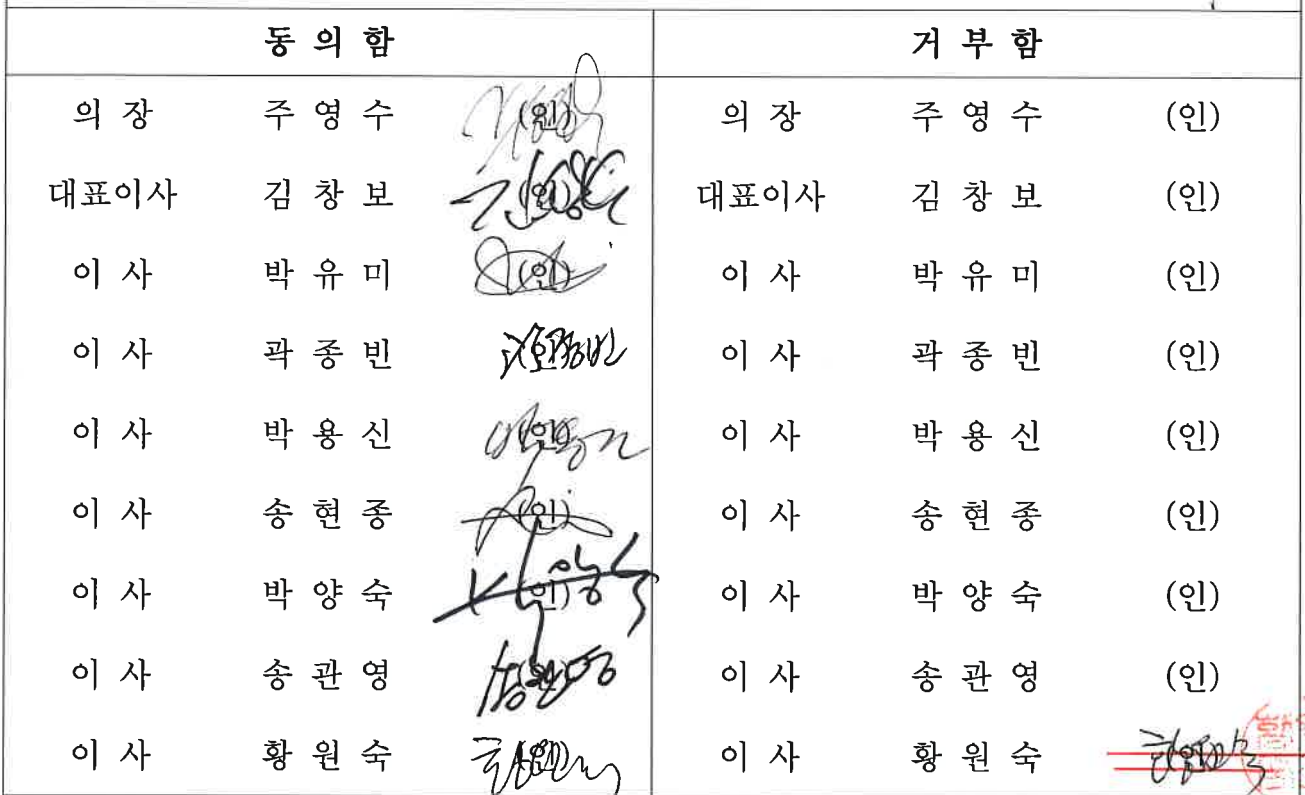 동 의 함 거 부 함
의 장 주 영 수 (인) 의 장 주 영 수 (인)
대표이사 김 창 보 (인) 대표이사 김 창 보 (인)
이 사 박 유 미 (인) 이 사 박 유 미 (인)
이 사 곽 종 빈 이 사 곽 종 빈 (인)
이 사 박 용 신 (인) 이 사 박 용 신 (인)
이 사 송 현 종 (인) 이 사 송 현 종 (인)
이 사 박 양 숙 (인) 이 사 박 양 숙 (인)
이 사 송 관 영 이 사 송 관 영 (인)
이 사 황 원 숙 이 사 황 원 숙